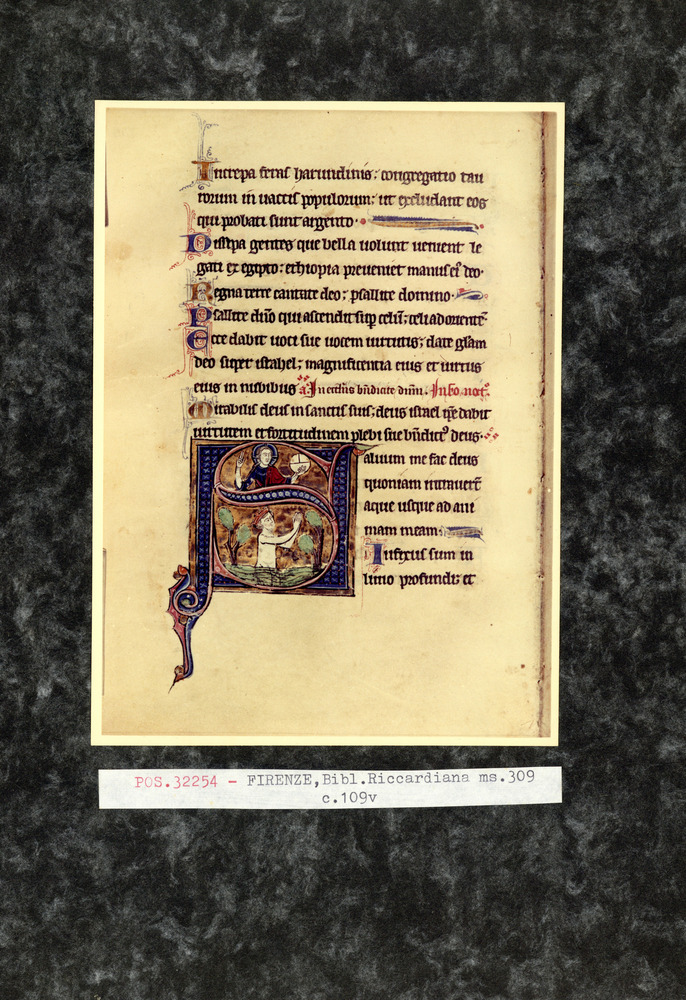 Increpa feras harundinis: congregatio tau
rorum in vaccis populorum: ut excludant eos
qui probati sunt argento.
Dissipa gentes que bella volunt venient le
gati ex egipto: ethiopia preveniet manus ei' deo.
Regna terre cantate deo: psallite domino.
Psallite dño qui ascendit sup celū: celi ad orientē
Ecce dabit voci sue vocem virtutis; date glam
deo super israhel; magnificentia eius et virtus
eius in nubibus a. In eccliis bñdicite dnm.
Mirabilis deus in sanctis suis; deus israel ipe dabit
virtutem et fortitudinem plebi sue bñdict' deus.
Salvum me fac deus
quoniam intraverūt
aque usque ad ani
mam meam:
Infixus sum in
limo profundi: et
POS.32254 - FIRENZE,Bibl.Riccardiana ms.309
c.109v